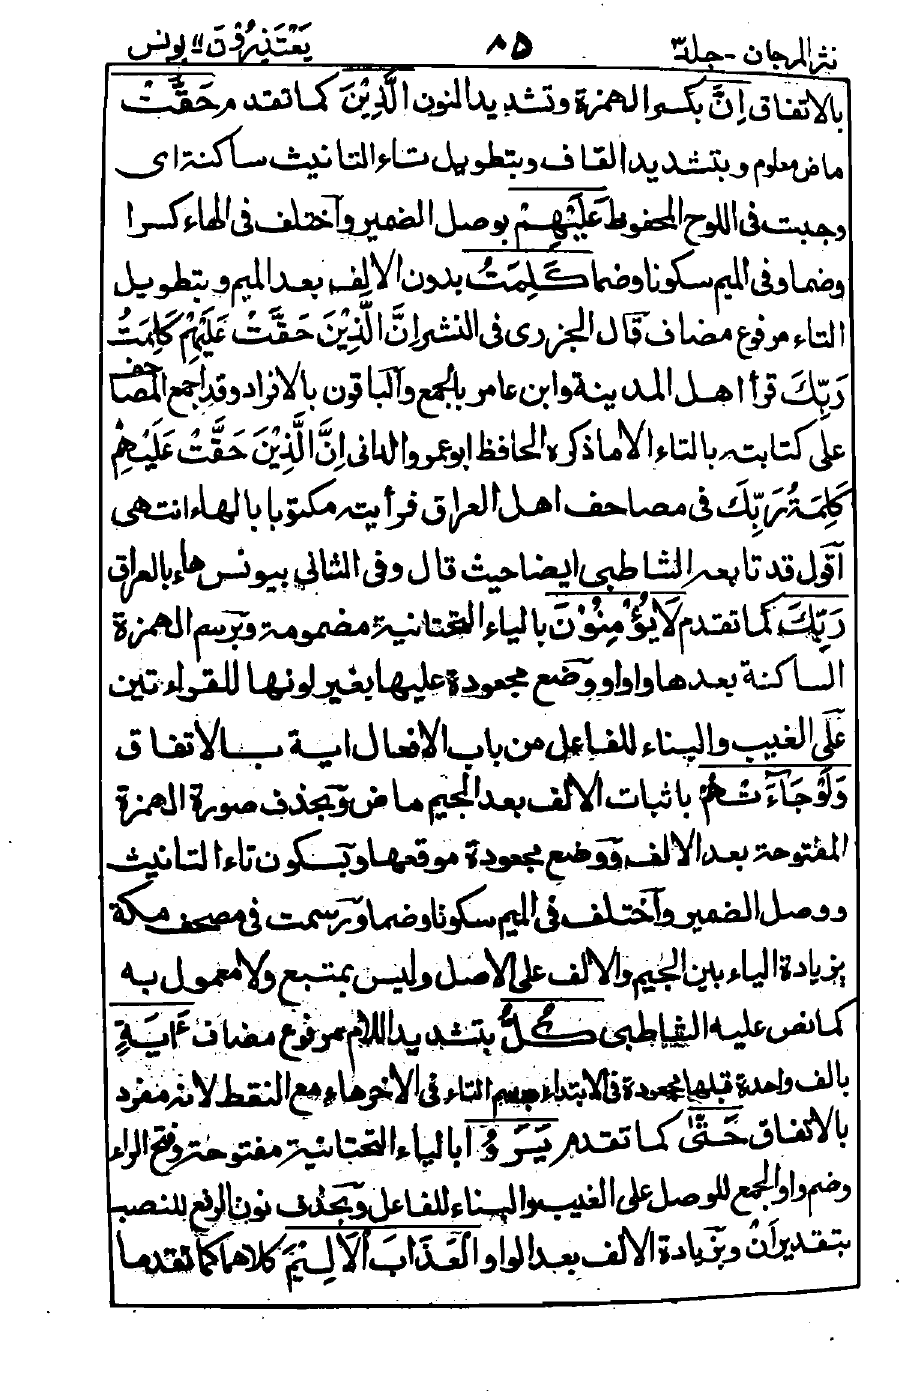 نثر المرجان - جلد ٣ ٨٥ يَعْتَذِرُوْنَ ١١ يونس
بالاتفاق اِنَّ بكسر الهمزة وتشديد النون الَّذِيْنَ كما تقدم حَقَّتْ
ماض معلوم وبتشديد القاف وبتطويل تاء التانيث ساكنة اى
وجبت فى اللوح المحفوظ عَلَيْهِمْ بوصل الضمير وآختلف فى الهاء كسرا
وضما وفى الميم سكونا وضما كَلِمَتُ بدون الالف بعد الميم وبتطويل
التاء مرفوع مضاف قال الجزرى فى النشر اِنَّ الَّذِيْنَ حَقَّتْ عَلَيْهِمْ كَلِمَتُ
رَبِّكَ قرأ اهل المدينة وابن عامر بالجمع والباقون بالافراد وقد اجمع المصاحف
على كتابته بالتاء الا ما ذكره الحافظ ابو عمرو الدانى اِنَّ الَّذِيْنَ حَقَّتْ عَلَيْهِمْ
كَلِمَةُ رَبِّكَ فى مصاحف اهل العراق فرأيته مكتوبا بالهاء انتهى
آقول قد تابعه الشاطبى ايضا حيث قال وفى الثانى بيونس هاء بالعراق
رَبِّكَ كما تقدم لَا يُؤْمِنُوْنَ بالياء التحتانية مضمومة وبرسم الهمزة
الساكنة بعدها واوا ووضع مجعودة عليها بغير لونها للقراءتين
عَلى الغيب والبناء للفاعل من باب الافعال اية بالاتفاق
وَلَوْ جَآءَتْهُمْ باثبات الالف بعد الجيم ماض وبحذف صورة الهمزة
المفتوحة بعد الالف ووضع مجعودة موقعها وبسكون تاء التانيث
ووصل الضمير وآختلف فى الميم سكونا وضما ورسمت فى مصحف مكة
بزيادة الياء بين الجيم والالف على الاصل وليس بمتبع ولا معمول به
كما نص عليه الشاطبى كُلُّ بتشديد اللام مرفوع مضاف ءَايَةٍ
بالف واحدة قبلها مجعودة فى الابتداء ورسم التاء فى الاخر هاء مع النقط لانه مفرد
بالاتفاق حَتّٰى كما تقدم يَرَوُا بالياء التحتانية مفتوحة وفتح الراء
وضم واو الجمع للوصل على الغيب والبناء للفاعل وبحذف نون الرفع للنصب
بتقدير اَنْ وبزيادة الالف بعد الواو الْعَذَابَ الْاَلِيْمَ كلاهما كما تقدما